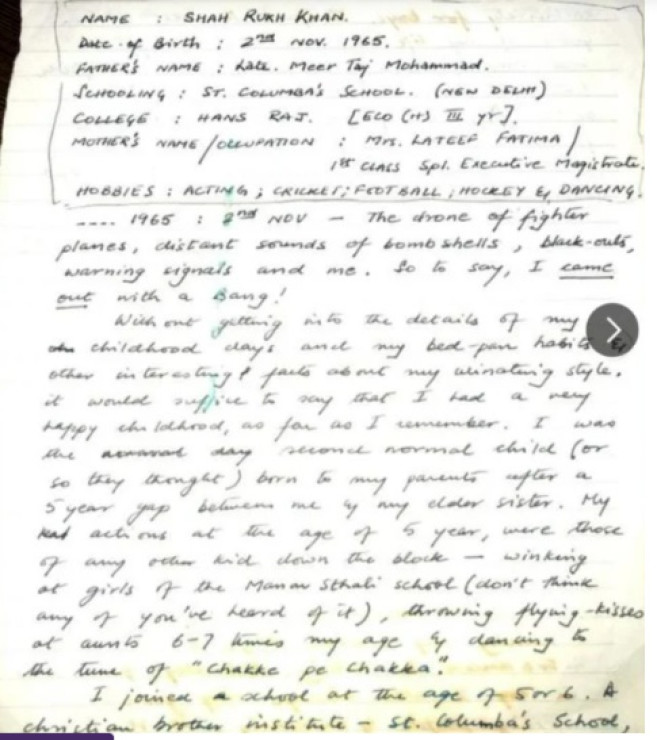 NAME : SHAH RUKH KHAN.
Date of Birth : 2nd NOV. 1965.
FATHER'S NAME : Late. Meer Taj Mohammad.
SCHOOLING : ST. COLUMBA'S SCHOOL. (NEW DELHI)
COLLEGE : HANS RAJ. [ECO (H) III yr].
MOTHER'S NAME/OCCUPATION : Mrs. LATEEF FATIMA/
1st CLASS Spl. Executive Magistrate.
HOBBIES : ACTING ; CRICKET; FOOTBALL ; HOCKEY & DANCING.
.... 1965 : 2nd NOV - The drone of fighter
planes, distant sounds of bombshells, black-outs,
warning signals and me. So to say, I came
out with a Bang!
Without getting into the details of my
childhood days and my bed-pan habits &
other interesting facts about my urinating style,
it would suffice to say that I had a very
happy childhood, as far as I remember. I was
the second normal child (or
so they thought) born to my parents after a
5 year gap between me & my elder sister. My
actions at the age of 5 year, were those
of any other kid down the block - winking
at girls of the Manav Sthali school (don't think
any of you've heard of it), throwing flying-kisses
at aunts 6-7 times my age & dancing to
the tune of "Chakke pe Chakka".
I joined a school at the age of 5 or 6. A
christian brother institute - St. Columba's School,